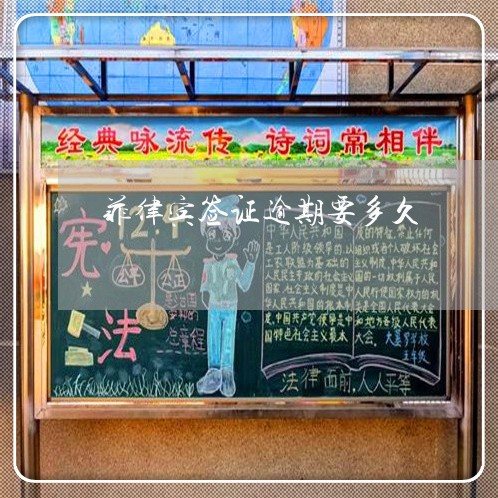 经典咏流传 诗词常相伴
菲律宾签证逾期要多久
宪
法
12.4
公平
公正
总章程
中华人民共和国
是工人阶级领导的,以
工农联盟为基础的
人民民主专政的社会主义
国家,社会主义制度是中
华人民共和国的根本制
度,中国共产党领导是中
国特色社会主义最本
质的特征,禁止任何
组织或者个人破坏社会
主义制度,中华人民共和
国的一切权利属于人民,
人民行使国家权力的机
关是全国人民代表大会
和地方各级人民代表
大会。
学校
五年级
法律面前,人人平等